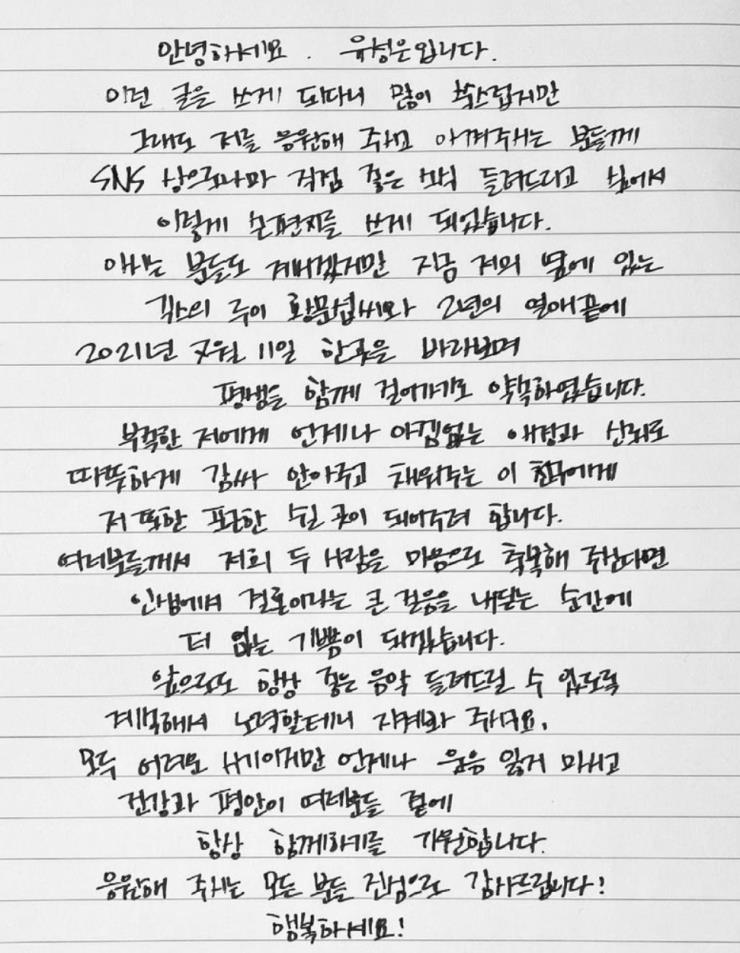 안녕하세요. 유성은입니다.
이런 글을 쓰게 되다니 많이 쑥스럽지만
그래도 저를 응원해 주시고 아껴주시는 분들께
SNS 상으로나마 직접 좋은 소식 들려드리고 싶어서
이렇게 손편지를 쓰게 되었습니다.
아시는 분들도 계시겠지만 지금 저의 옆에 있는
긱스의 루이 황문섭씨와 2년의 연애끝에
2021년 7월 11일 한곳을 바라보며
평생을 함께 걸어가기로 약속하였습니다.
부족한 저에게 언제나 아낌없는 애정과 신뢰로
따뜻하게 감싸 안아주고 채워주는 이 친구에게
저 또한 포근한 쉴 곳이 되어주려 합니다.
여러분들께서 저희 두 사람을 마음으로 축복해 주신다면
인생에서 결혼이라는 큰 걸음을 내딛는 순간에
더 없는 기쁨이 되겠습니다.
앞으로도 항상 좋은 음악 들려드릴 수 있도록
계속해서 노력할테니 지켜봐 주세요.
모두 어려운 시기이지만 언제나 웃음 잃지 마시고
건강과 평안이 여러분들 곁에
항상 함께하기를 기원합니다.
응원해 주시는 모든 분들 진심으로 감사드립니다!
행복하세요!